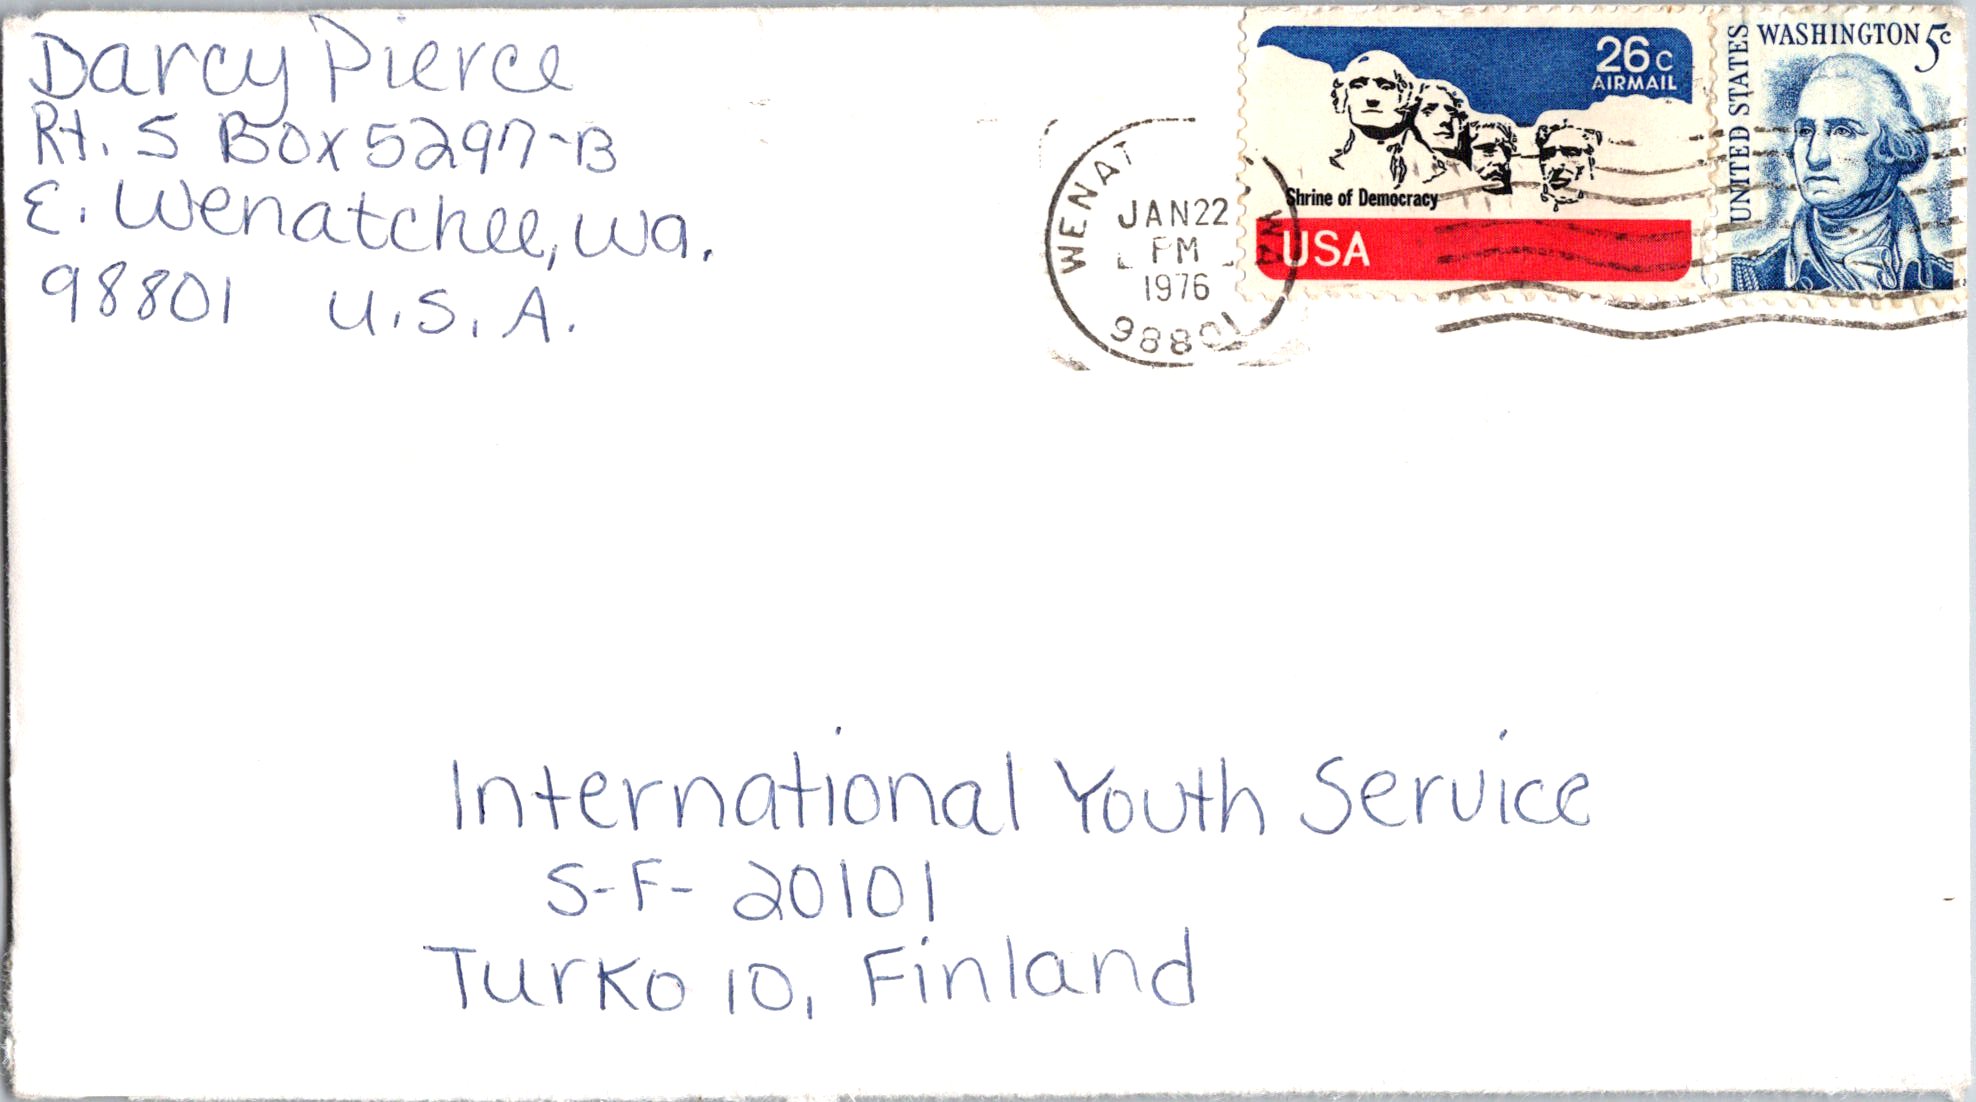 Darcy Pierce
Rt. 5 Box 5297-B
E. Wenatchee, Wa.
98801 U.S.A.
WENAT
JAN 22
PM
1976
WA
98801
26c
AIRMAIL
Shrine of Democracy
USA
UNITED STATES
WASHINGTON 5c
International Youth Service
S-F- 20101
Turko 10, Finland